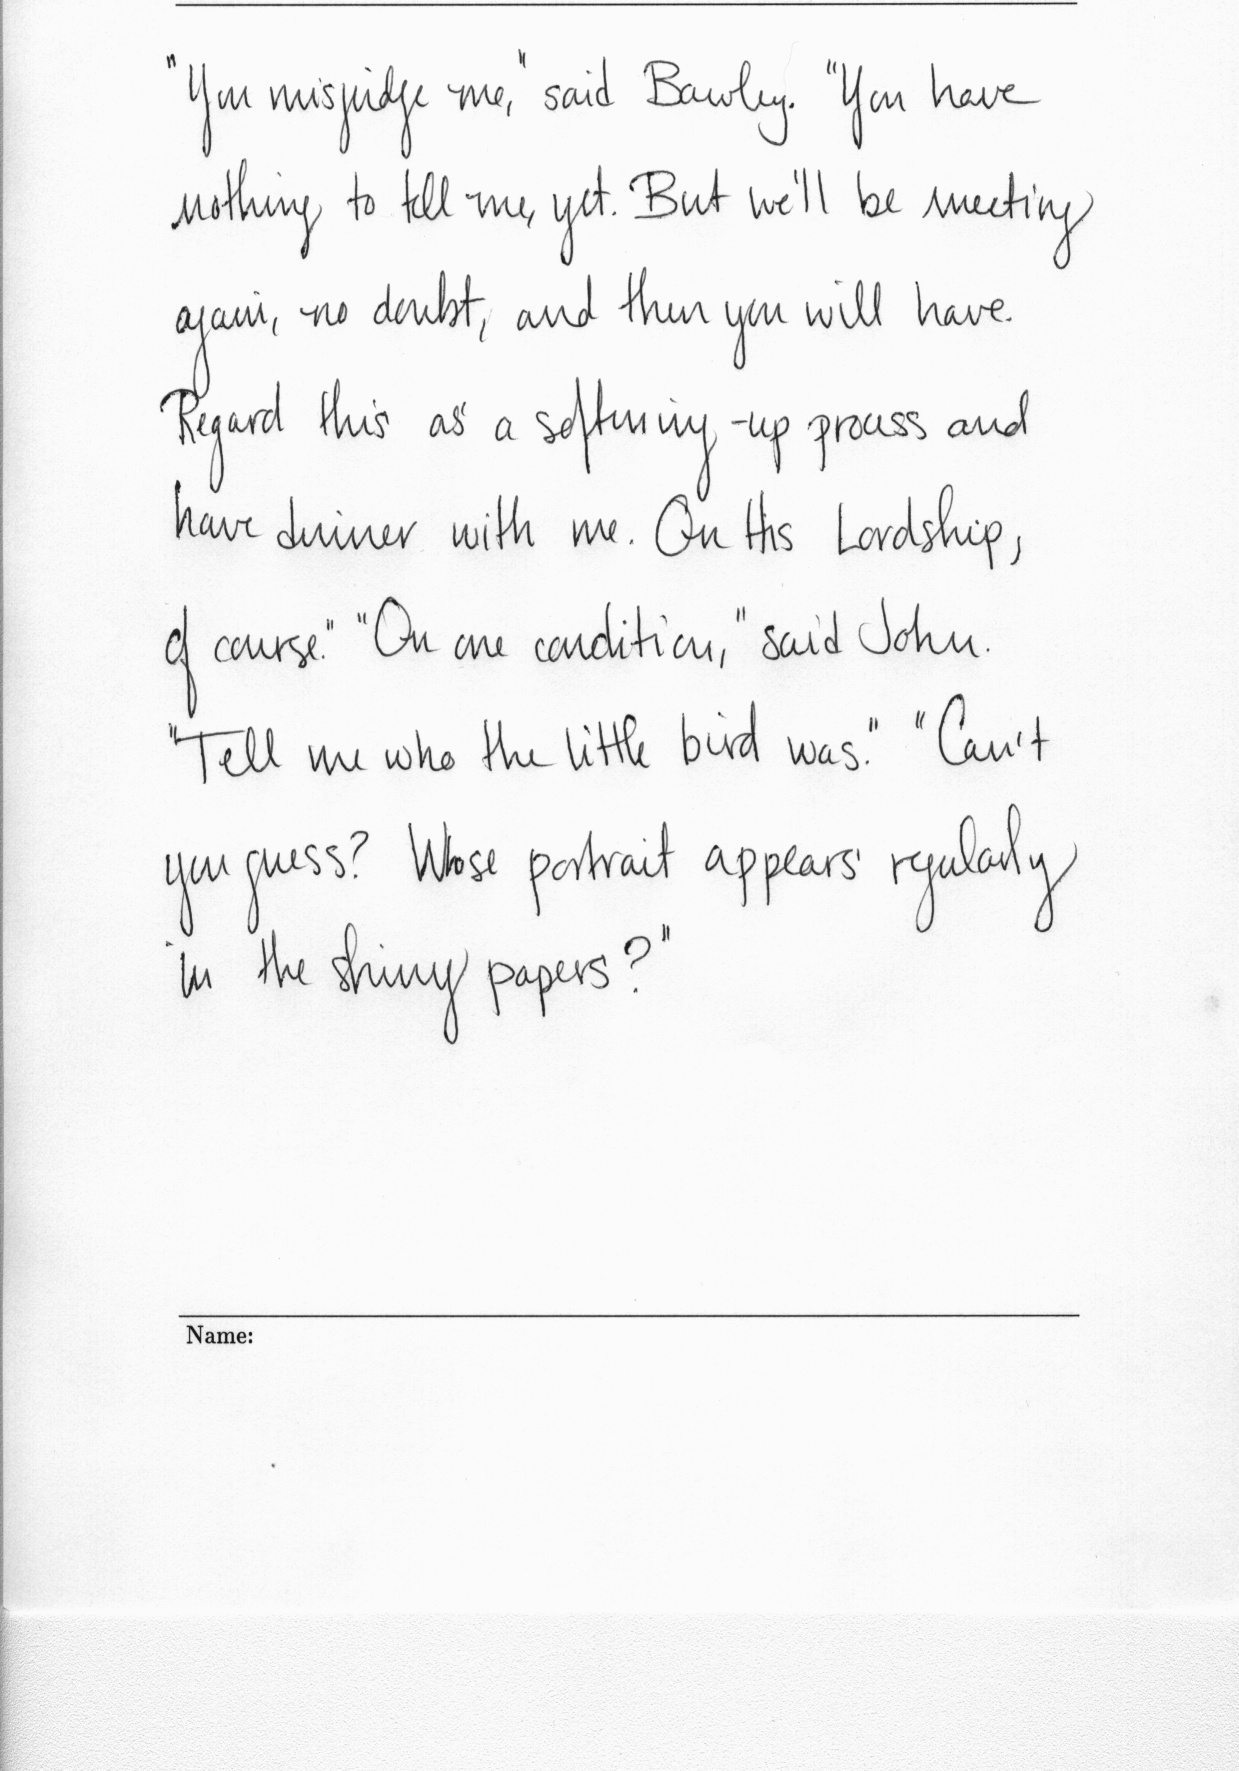 "You misjudge me," said Bawley. "You have
nothing to tell me, yet. But we'll be meeting
again, no doubt, and then you will have.
Regard this as a softening-up process and
have dinner with me. On His Lordship,
of course." "On one condition," said John.
"Tell me who the little bird was." "Can't
you guess? Whose portrait appears regularly
in the shiny papers?"
Name: